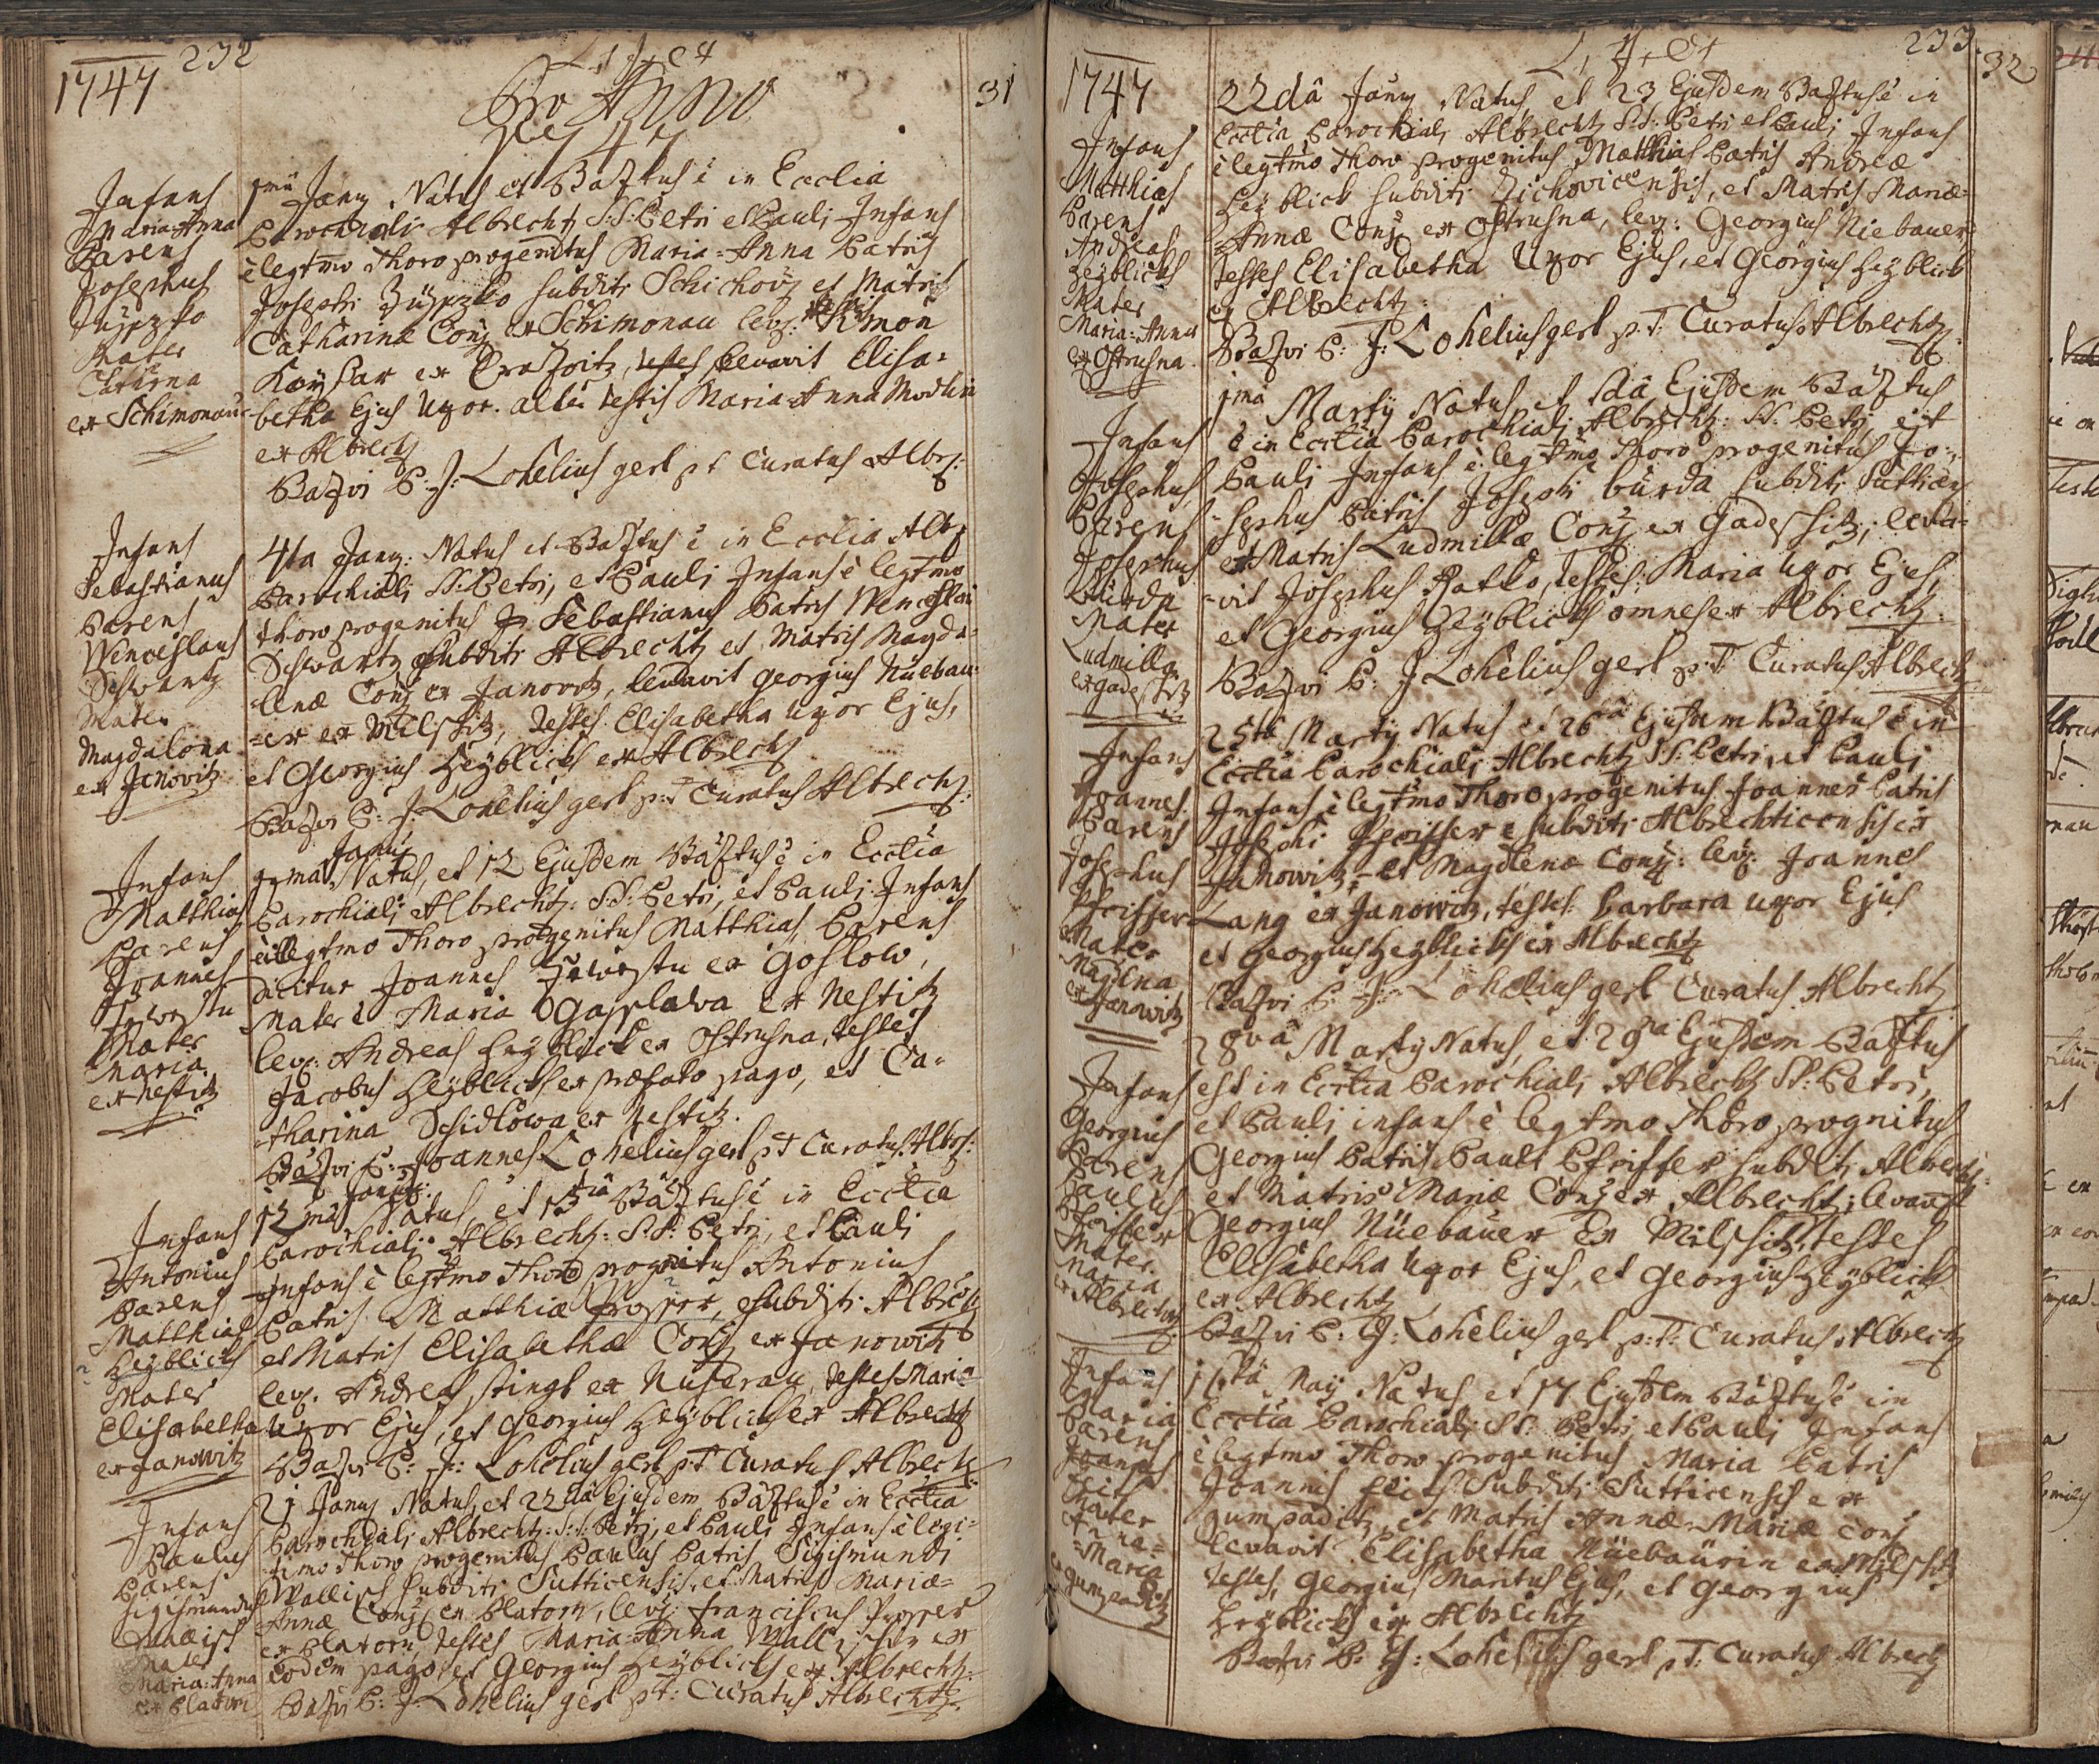 232
1747
Pro Anno
1747
31
Infans
Maria-Anna
Parens
Josephus
Mater
Catharina
ex Schimonau
Jany Natus et Baptus ê in Ecclia
Parochiali Albrechtz S:S: Petri et Pauli Infans
è legtmo Thoro progenitus Maria-Anna Patris
Josephi subditi Schichoviz et Matris
Catharinæ Conj ex Schimonau lev: Simon
Kaysar ex testes levavit Elisa-
betha Ejus Uxor. altera testis Maria-Anna
ex Albrecht
Bapvi P: J: Lohelius gerl p t Curatus Albr:
Infans
Sebastianus
Parens
Wenceslaus
Schwartz
Mater
Magdalena
ex Janovitz
4ta Jany: Natus et Baptus ê in Ecclia Albr
Parochiali SS: Petri, et Pauli Infans è legtmo
thoro progenitus Sebastianus Patris Wenceslai
Schwartz subditi Albrechtz et Matris Magda-
lenæ Conj ex Janovitz, levavit georgius Nuebau-
er ex Milschitz, testes Elisabetha Uxor Ejus,
et Georgius Heyblick ex Albrechtz
Bapvi P: J: Lohelius gerl p:T Curatus Albrechtz:
Infans
Matthias
Parens
Joannes
Mater
Maria
ex Nestitz
Januy
Natus, et 12 Ejusdem Baptus ê in Ecclia
Parochiali Albrechtz: SS: Petri, et Pauli Infans
illegtmo Thoro progenitus Matthias Parens
dicitur Joannes ex Goslow,
Mater ê Maria ex Nestitz
lev: Andreas Heyblick ex Ostrusna, testes
Jacobus Heyblick ex præfato pago, et Ca-
tharina Schidlowa ex Nestitz.
Bapvi P: Joannes Lohelius gerl p T Curatus Albr:
Infans
Antonius
Parens
Matthias
Heyblick
Mater
Elisabetha
ex Janowitz
12ma Januy Natus, et 13tia Baptus ê in Ecclia
Parochiali Albrecht: S:S: Petri, et Pauli
Infans è legtmo Thoro prognitus Antonius
Patris Matthiæ Prosser, subditi Albrechtz
et Matris Elisabethæ Conj ex Janowitz
lev. Andreas Stingl ex Nuserau, testes Maria
Uxor Ejus, et Georgius Heyblick ex Albrechtz
Bapvi P: J: Lohelius gerl p:T Curatus Albrechtz
Infans
Paulus
Parens
Sigismundus
Wallisch
Mater
Maria-Anna
ex Platorn
21 Januy Natus, et 22da Ejusdem Baptus ê in Ecclia
Parochiali Albrecht: S:S: Petri, et Pauli Infans è legi-
timo Thoro progenitus Paulus Patris Sigismundi
Wallisch subditi Sutticensis, et Matris Mariæ-
Annæ Conj ex Platorn, lev: franciscus Prosser
ex Platorn, testes Maria-Anna Wallischin ex
eodem pago, et Georgius Heyblick ex Albrechtz:
Bapvi P: J: Lohelius gerl p T: Curatus Albrechtz.
233
32
1747
Infans
Matthias
Parens
Andreas
Heyblick
Mater
Maria-Anna
ex Ostrusna
22dâ Januy Natus, et 23 Ejusdem Baptus ê in
Ecclia Parochiali Albrechtz S:S: Petri et Pauli Infans
è legtmo Thoro progenitus Matthias Patris Andreæ
Heyblick subditi Zichovicensis, et Matris Mariæ-
Annæ Conj ex Ostrusna, lev: Georgius Niebauer,
testes Elisabetha Uxor Ejus, et Georgius Heyblick
ex Albrechtz.
Bapvi P: J: Lohelius gerl p:T: Curatus Albrechtz
Infans
Josephus
Parens
Josephus
Burda
Mater
Ludmilla
ex gadeschitz
1ma Martij Natus, et 2dâ Ejusdem Baptus
ê in Ecclia Parochiali Albrecht: SS: Petri, et
Pauli Infans è legtmo Thoro progenitus Jo-
sephus Patris Josephi burda subditi
et Matris Ludmillæ Conj ex gadeschitz, leva-
vit Josephus Ratko, testes Maria Uxor Ejus,
et Georgius Heyblick omnes ex Albrechtz.
Bapvi P: J Lohelius gerl p:T Curatus Albrechtz
Infans
Joannes.
Parens
Josephus
Pfeiffer
Mater
Magdlena
ex Janowitz
25ta Martij Natus et 26tâ Ejusdem Baptus ê in
Ecclia Parochiali Albrechtz SS: Petri, et Pauli
Infans è legtmo Thoro progenitus Joannes Patris
Josephi Pfeiffer subditi Albrechticensis ex
Janowitz, et Magdlenæ Conj: lev: Joannes
Lang ex Janowitz, testes Barbara uxor Ejus
et georgius Heyblick ex Albrechtz
Bapvi P: J: Lohelius gerl Curatus Albrechtz
Infans
Georgius
Parens
Paulus
Pfeiffer
Mater
Maria
ex Albrechtz
28va Martij Natus, et 29na Ejusdem Baptus
est in Ecclia Parochiali Albrechtz SS: Petri,
et Pauli infans è legtmo Thoro prognitus
Georgius Patris Pauli Pfeiffer subditi Albrechtz
et Matris Mariæ Conj ex Albrecht; levavit
Georgius Nuebauer Ex Milschitz, testes
Elisabetha Uxor Ejus, et georgius Heyblick
ex Albrechtz
Bapvi P: J: Lohelius gerl p:T: Curatus Albrechtz
Infans
Maria
Parens
Joannes
Mater
Anna-
Maria
ex gumpaditz
16ta Maij Natus et 17 Ejusdem Baptus ê in
Ecclia Parochiali SS: Petri, et Pauli Infans
è legtmo Thoro progenitus Maria Patris
Joannis Subditi Sutticensis ex
gumpaditz, et Matris Annæ-Mariæ Conj
levavit Elisabetha Nuebaurin ex Milschitz
testes, Georgius Maritus Ejus, et Georgius
Heyblick ex Albrechtz
Bapvi P: J: Lohelius gerl p T: Curatus Albrechtz